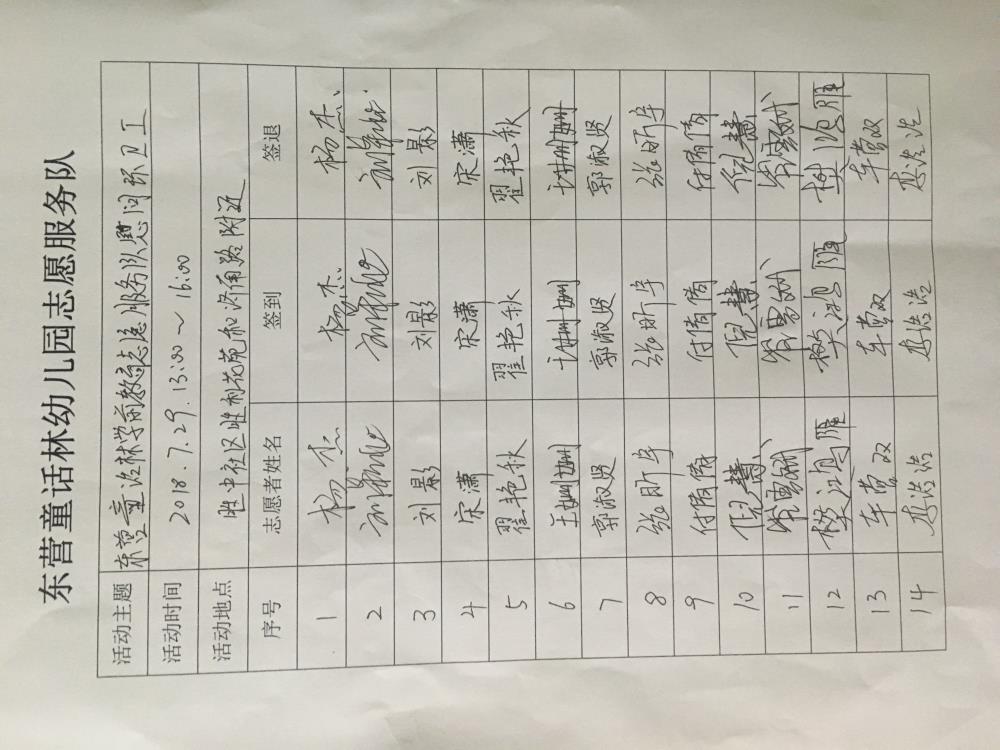 东营童话林幼儿园志愿服务队
活动主题 东营童话林学前教育志愿服务队慰问环卫工
活动时间 2018.7.29.13:00～16:00
活动地点 胜中社区胜利花苑和济南路附近
序号 志愿者姓名 签到 签退
1 杨杰 杨杰 杨杰
2
3 刘影 刘影 刘影
4 宋潇 宋潇 宋潇
5 翟艳秋 翟艳秋 翟艳秋
6
7 郭淑贤 郭淑贤 郭淑贤
8 张昕宇 张昕宇 张昕宇
9 付倩倩 付倩倩 付倩倩
10 倪慧 倪慧 倪慧
11
12 樊滢雁 樊滢雁 樊滢雁
13 车营双 车营双 车营双
14 李浩浩 李浩浩 李浩浩